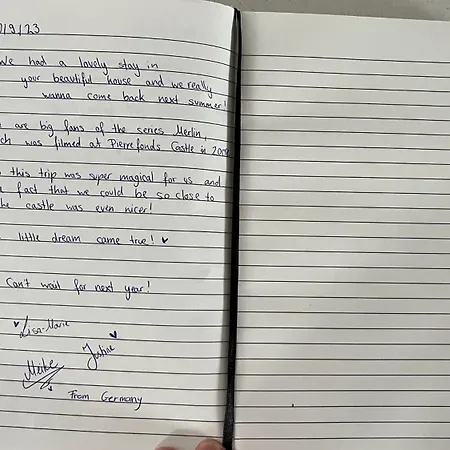 /9/23
We had a lovely stay in
your beautiful house and we really
wanna come back next summer!
are big fans of the series Merlin,
ch was filmed at Pierrefonds Castle in 2008
this trip was super magical for us and
fact that we could be so close to
he castle was even nicer!
little dream came true! ♥
Can't wait for next year!
Lisa-Marie
Justine
Meike
From Germany